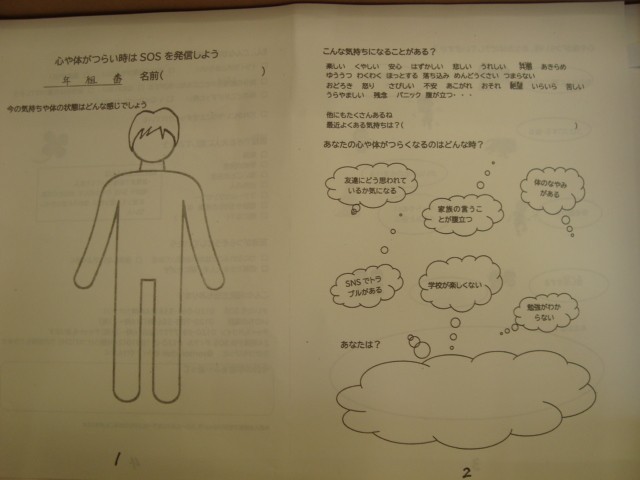 心や体がつらい時は SOS を発信しよう
年 組 番 名前( )
今の気持ちや体の状態はどんな感じでしょう
1
こんな気持ちになることがある?
楽しい くやしい 安心 はずかしい 悲しい うれしい 興奮 あきらめ
ゆううつ わくわく ほっとする 落ち込み めんどうくさい つまらない
おどろき 怒り さびしい 不安 あこがれ おそれ 絶望 いらいら 苦しい
うらやましい 残念 パニック 腹が立つ・・・
他にもたくさんあるね
最近よくある気持ちは?( )
あなたの心や体がつらくなるのはどんな時?
友達にどう思われて
いるか気になる
家族の言うこ
とが腹立つ
体のなやみ
がある
SNSでトラ
ブルがある
学校が楽しくない
勉強がわか
らない
あなたは?
2